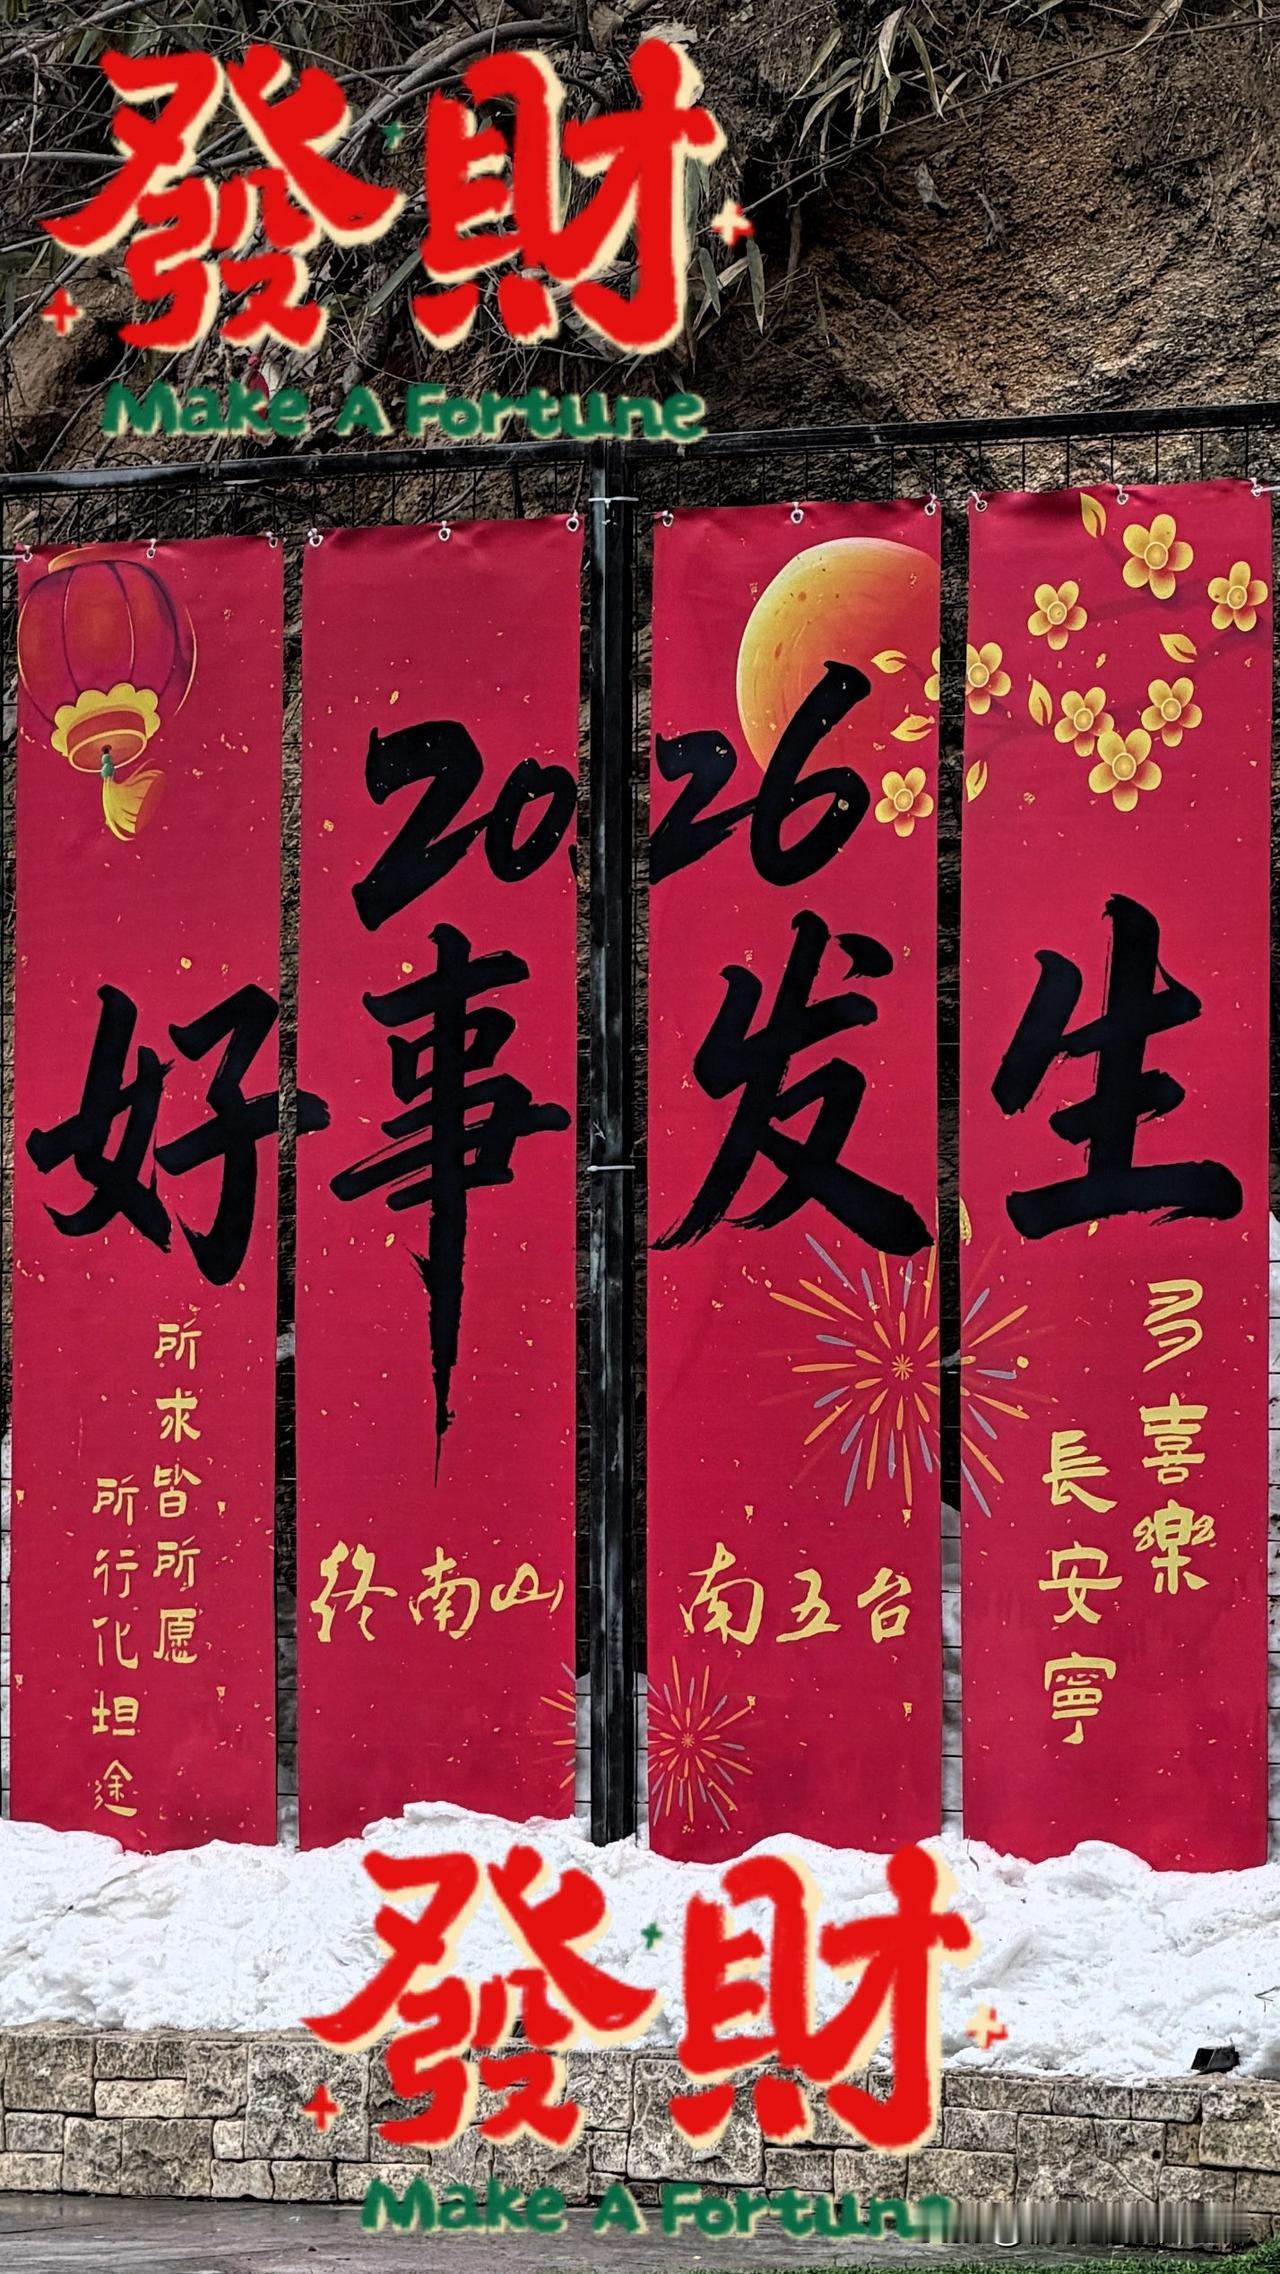 發財
Make A Fortune
2026
好事发生
所求皆所愿
所行化坦途
终南山
南五台
多喜樂
長安寧
發財
Make A Fortun